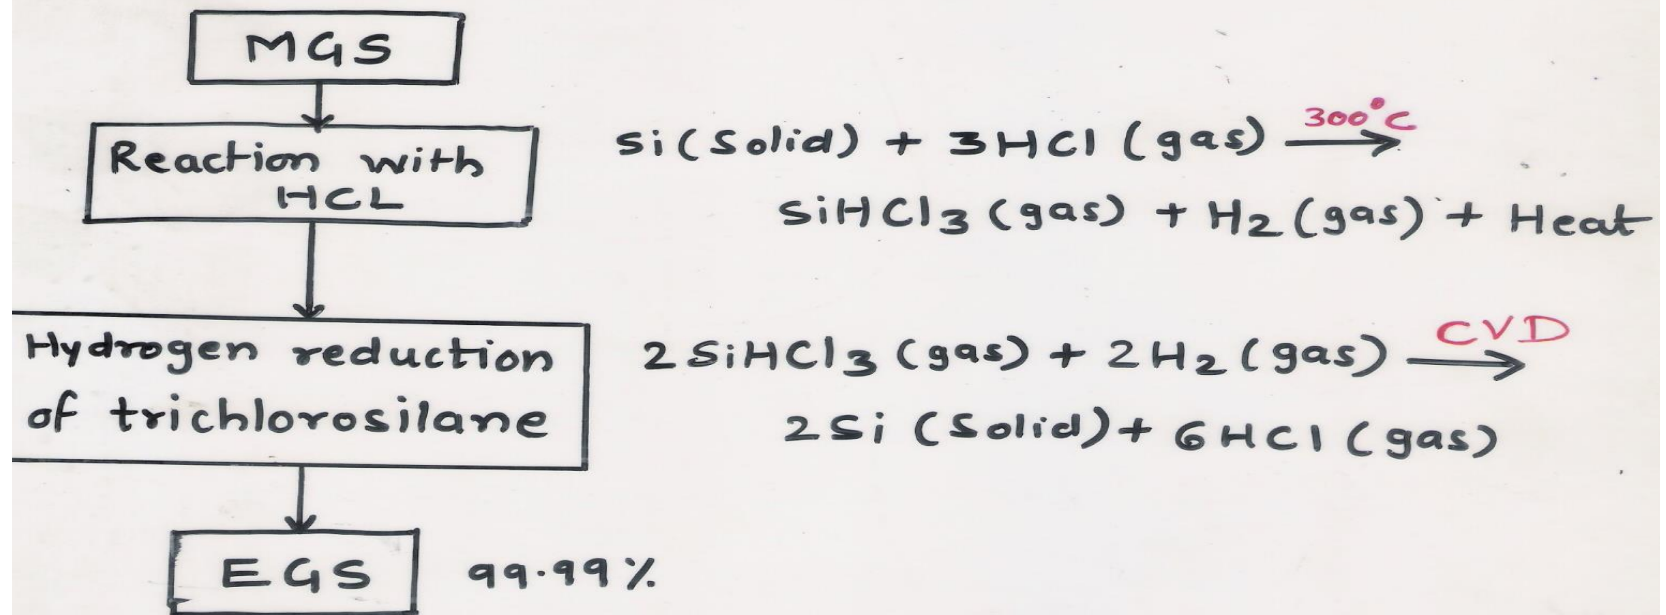 MGS
Reaction with
HCL
300°C
Si(Solid) + 3HCl (gas) →
SiHCl3 (gas) + H2 (gas) + Heat
Hydrogen reduction
of trichlorosilane
CVD
2SiHCl3 (gas) + 2H2 (gas) →
2Si (Solid) + 6HCl (gas)
EGS 99.99%